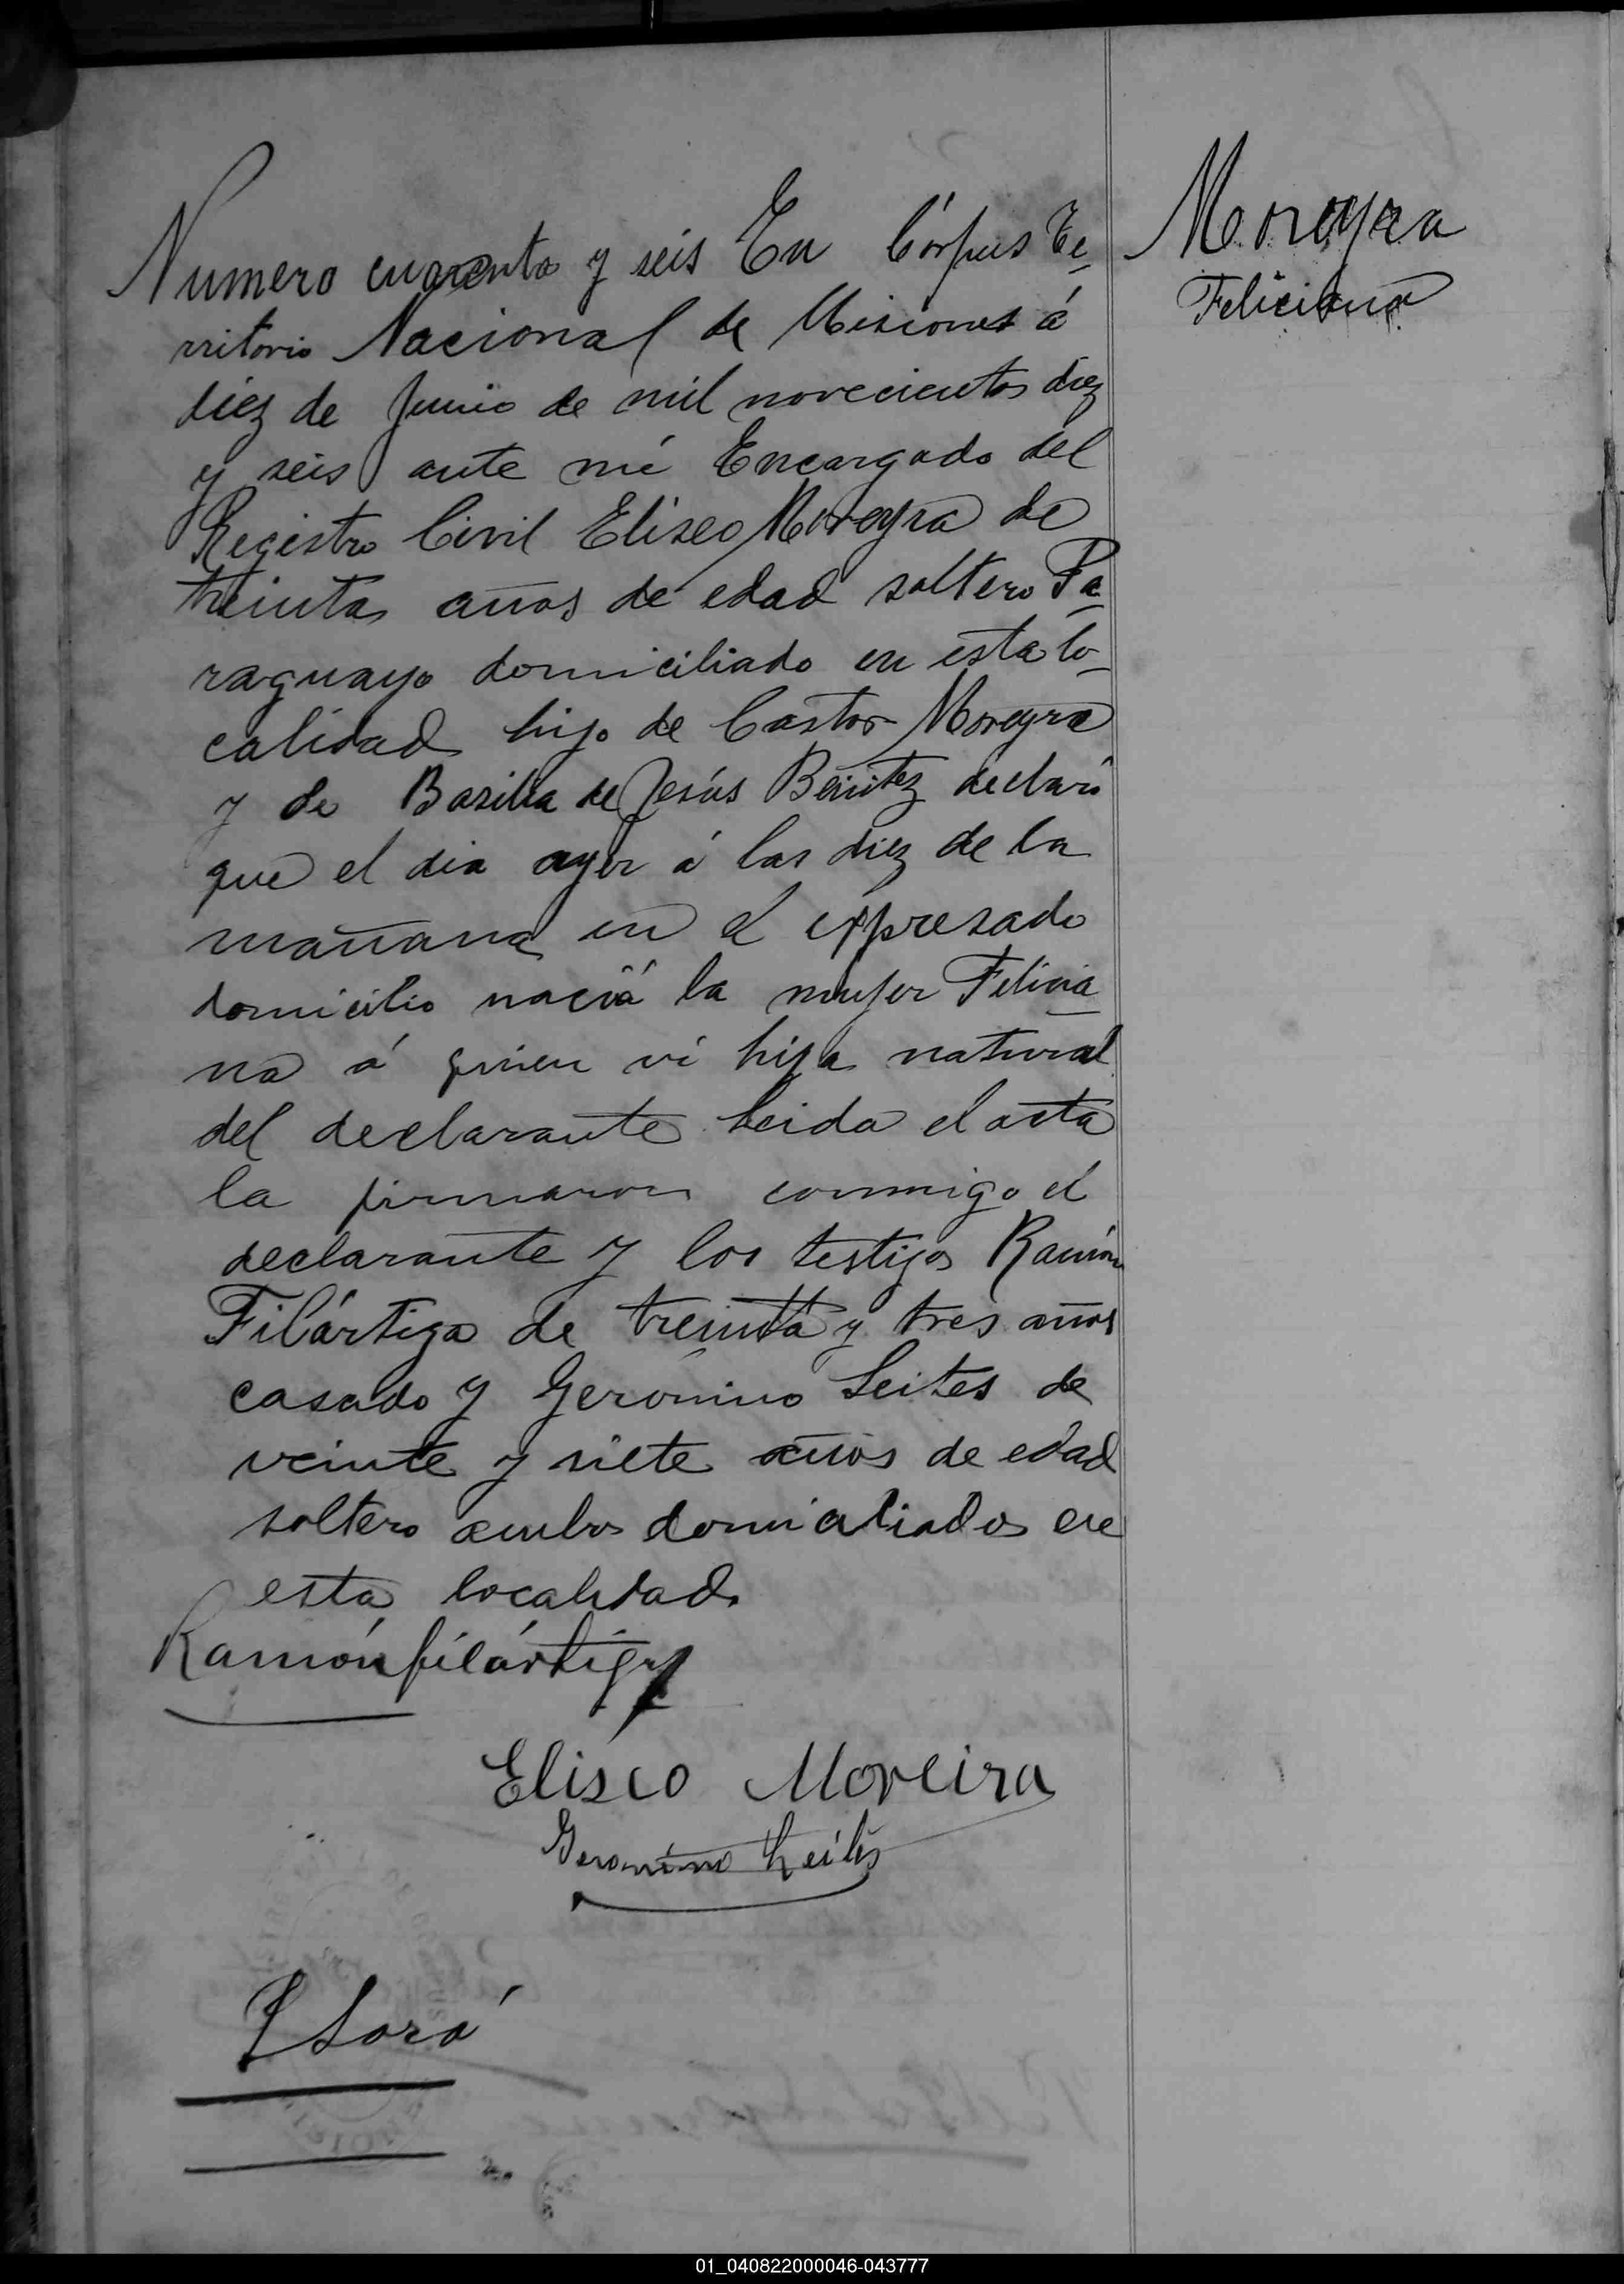 Moreyra
Feliciana
Numero cuarenta y seis En Córpus Te-
rritorio Nacional de Misiones á
diez de Junio de mil novecientos diez
y seis ante mi Encargado del
Registro Civil Eliseo Moreyra de
treinta años de edad soltero Pa-
raguayo domiciliado en esta lo-
calidad hijo de Castor Moreyra
y de Basilia de Jesús Benitez declaró
que el dia ayer á las diez de la
mañana en el expresado
domicilio nació la mujer Felicia-
na á quien vi hija natural
del declarante Leida el acta
la firmaron conmigo el
declarante y los testigos Ramón
Filártiga de treinta y tres años
casado y Geronimo Leites de
veinte y siete años de edad
soltero ambos domiciliados en
esta localidad.
Ramón filártiga
Eliseo Moreira
Geronimo Leites
01_040822000046-043777